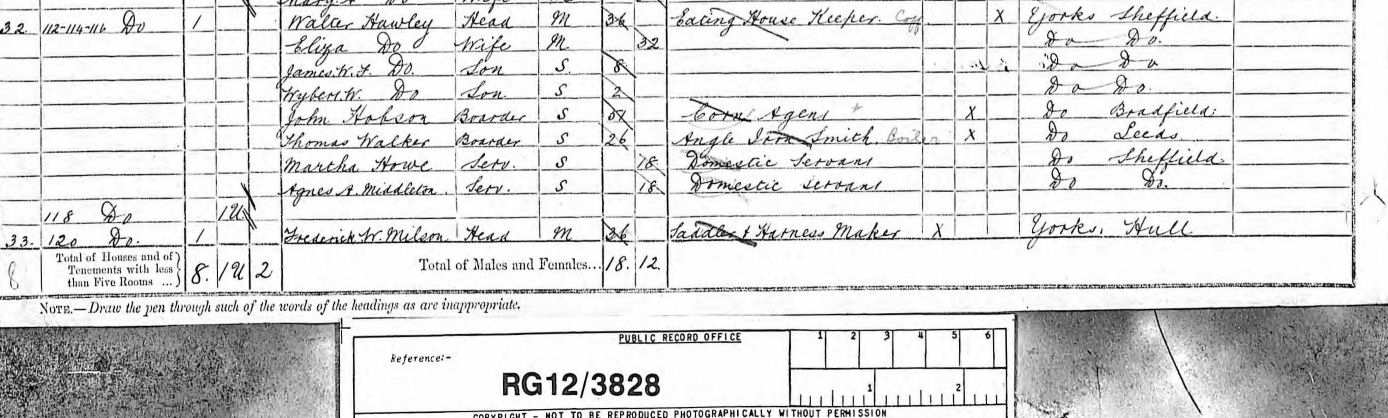 32. 112-114-116 Do 1 Walter Hawley Head M 36 Eating House Keeper. Coff X Yorks Sheffield.
Eliza Do Wife M 32 Do Do.
James W. F. Do. Son S. 8 Do Do
Wybert W. Do Son S. 2 Do Do.
John Hobson Boarder S Corn Agent X Do Bradfield.
Thomas Walker Boarder S 26 Angle Iron Smith. Boiler X Do Leeds
Martha Howe Serv. S 18 Domestic Servant Do Sheffield.
Agnes A. Middleton. Serv. S 18 Domestic servant Do Do.
118 Do 1U
33. 120 Do. 1 Frederick W. Milson Head M 36 Saddler & Harness Maker X Yorks. Hull
8 Total of Houses and of Tenements with less than Five Rooms ... 8. 1U 2 Total of Males and Females... 18. 12.
NOTE.—Draw the pen through such of the words of the headings as are inappropriate.
PUBLIC RECORD OFFICE 1 2 3 4 5 6
Reference:-
RG12/3828 1 2
COPYRIGHT - NOT TO BE REPRODUCED PHOTOGRAPHICALLY WITHOUT PERMISSION